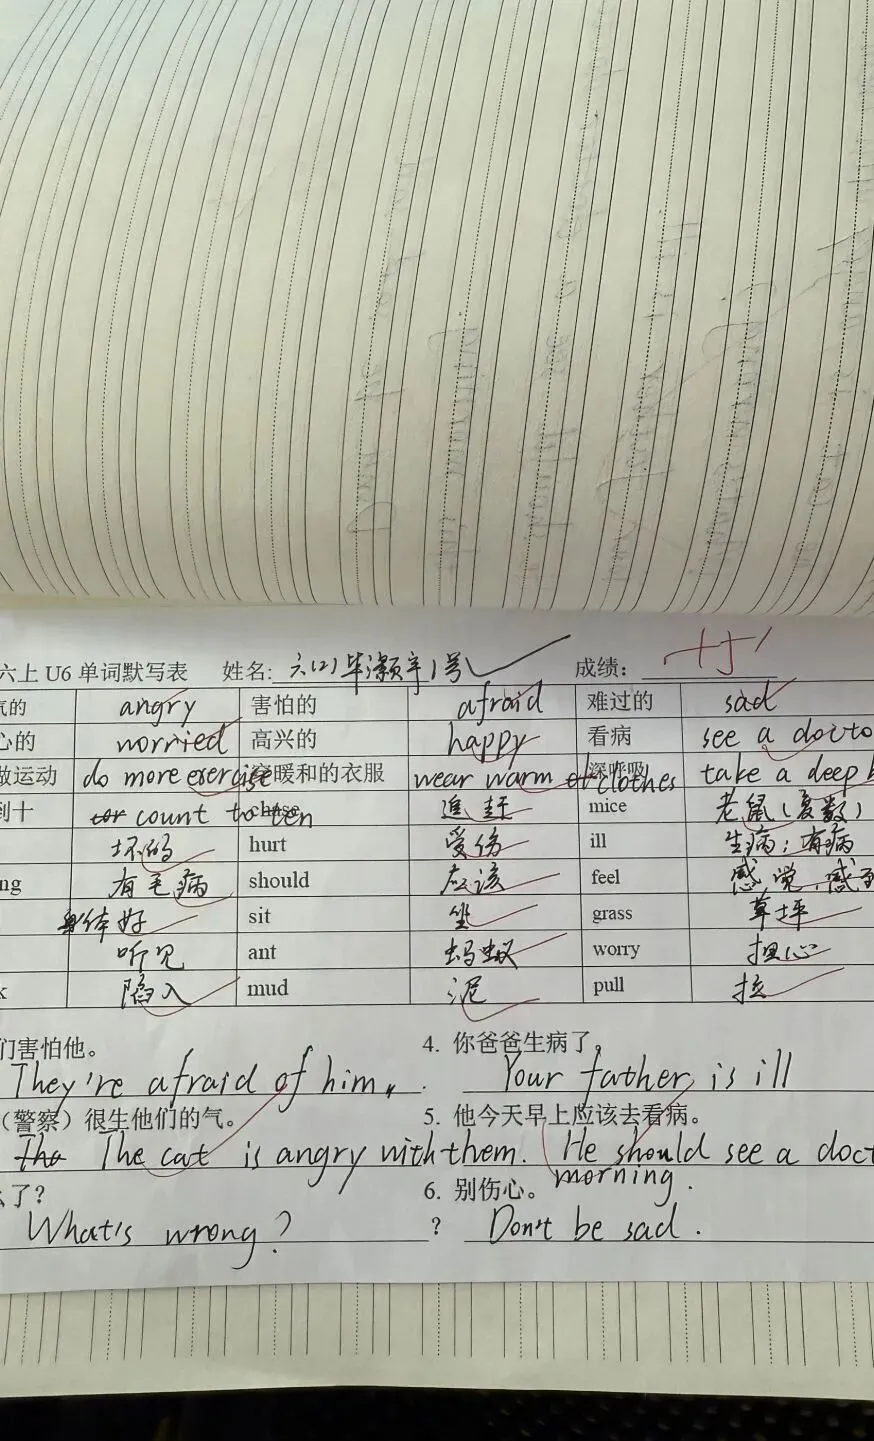 六上 U6 单词默写表 姓名: 六(2) 毕灏宇 1号 成绩:
气的 angry 害怕的 afraid 难过的 sad
心的 worried 高兴的 happy 看病 see a docto
做运动 do more exercise 穿暖和的衣服 wear warm clothes 深呼吸 take a deep b
到十 count to ten chase 追赶 mice 老鼠(复数)
坏的 hurt 受伤 ill 生病；有病
ng 有毛病 should 应该 feel 感觉，感到
身体好 sit 坐 grass 草坪
听见 ant 蚂蚁 worry 担心
k 陷入 mud 泥 pull 拉
们害怕他。 4. 你爸爸生病了。
They're afraid of him. Your father is ill
(警察) 很生他们的气。 5. 他今天早上应该去看病。
The cat is angry with them. He should see a doct
morning.
么了? 6. 别伤心。
What's wrong? ? Don't be sad.